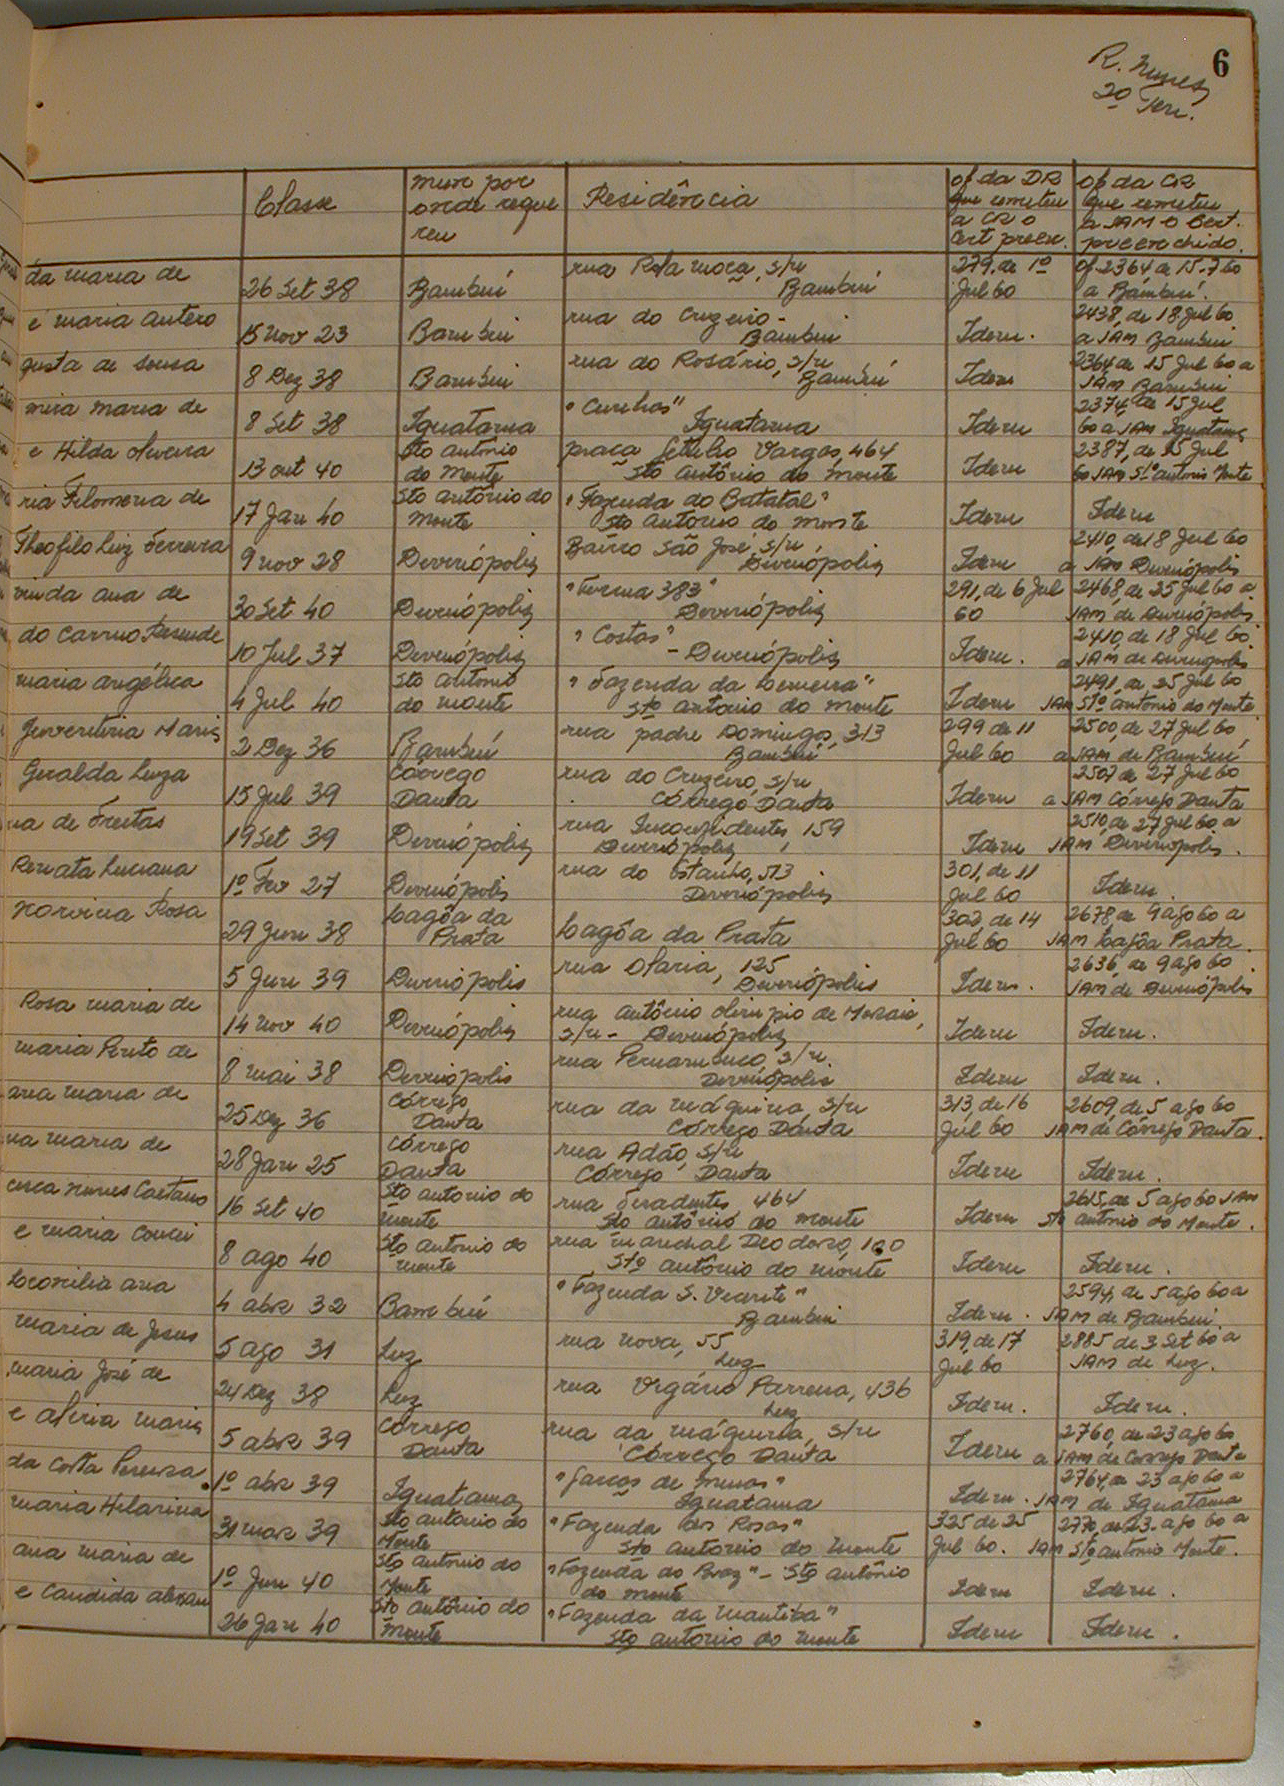 6
R. Nunes
2º Ten.
Classe
mun por onde reque reu
Residência
of da DR que remeteu a CR o Cert preen.
of da CR que remeteu a JAM o Cert. preenchido.
da maria de 26 Set 38 Bambuí rua Rola moça, s/n Bambuí 279, de 1º Jul 60 of 2364 de 15-7-60 a Bambuí.
e maria antero 15 nov 23 Bambui rua do Cruzeiro - Bambui Idem. 2438, de 18 Jul 60 a JAM Bambui
gusta de sousa 8 Dez 38 Bambui rua do Rosário, s/n Bambuí Idem 2364 de 15 Jul 60 a JAM Bambui
mira maria de 8 Set 38 Iguatama "Cunhas" Iguatama Idem 2374, de 15 Jul 60 a JAM Iguatama
e Hilda oliveira 13 out 40 Sto antônio do Monte praça Getulio Vargas, 464 Sto antônio do monte Idem 2387, de 15 Jul 60 JAM Stº antonio Monte
ria Filomena de 17 Jan 40 Sto antônio do Monte "Fazenda do Batatal" Sto antonio do monte Idem Idem
Theofilo Luiz Ferreira 9 nov 28 Divinópolis Bairro São José, s/n Divinópolis Idem 2410, de 18 Jul 60 a JAM Divinópolis
vinda ana de 30 Set 40 Divinópolis "Turma 383" Divinópolis 291, de 6 Jul 60 2468 de 25 Jul 60 a JAM de Divinópolis
do Carmo Resende 10 Jul 37 Divinópolis "Costas" - Divinópolis Idem. 2410, de 18 Jul 60 a JAM de Divinopolis
maria angélica 4 Jul 40 Sto antonio do monte "Fazenda da Limeira" Stº antonio do monte Idem 2491, de 25 Jul 60 JAM Stº antônio do Monte
Juventina Maria 2 Dez 36 Bambuí rua padre Domingos, 313 Bambuí 299 de 11 Jul 60 2500, de 27 Jul 60 a JAM de Bambuí
Geralda Luiza 15 Jul 39 Córrego Danta rua do Cruzeiro, s/n Córrego Danta Idem 2507 de 27 Jul 60 a JAM Córrego Danta
na de Freitas 19 Set 39 Divinópolis rua Inconfidentes, 159 Divinópolis Idem 2510, de 27 Jul 60 a JAM Divinópolis.
Renata Luciana 1º Fev 27 Divinópolis rua do Estanho, 513 Divinópolis 301, de 11 Jul 60 Idem
Norvina Rosa 29 Jun 38 Lagôa da Prata Lagôa da Prata 302, de 14 Jul 60 2678 de 9 ago 60 a JAM Lagôa Prata.
5 Jun 39 Divinópolis rua Olaria, 125 Divinópolis Idem. 2636, de 9 ago 60 JAM de Divinópolis
Rosa maria de 14 nov 40 Divinópolis rua antônio olimpio de Morais, s/n - Divinópolis Idem Idem.
maria Pinto de 8 mai 38 Divinópolis rua Pernambuco, s/n Divinópolis Idem Idem.
ana maria de 25 Dez 36 Córrego Danta rua da máquina, s/n Córrego Danta 313, de 16 Jul 60 2609, de 5 ago 60 JAM de Córrego Danta.
na maria de 28 Jan 25 Córrego Danta rua Adão, s/n Córrego Danta Idem Idem.
Nunes Caetano 16 Set 40 Sto antonio do monte rua Tiradentes 464 Sto antônio do monte Idem 2615, de 5 ago 60 JAM Sto antonio do Monte.
e maria Concei 8 ago 40 Sto antonio do monte rua marechal Deodoro, 120 Stº antônio do monte Idem Idem.
ana 4 abr 32 Bambuí "Fazenda S. Vicente" Bambui Idem. 2594, de 5 ago 60 a JAM de Bambui
maria de Jesus 5 ago 31 Luz rua nova, 55 Luz 319, de 17 Jul 60 2885 de 3 Set 60 a JAM de Luz.
maria José de 24 Dez 38 Luz rua Vigário Parreira, 436 Luz Idem. Idem.
e maria 5 abr 39 Córrego Danta rua da máquina, s/n Córrego Danta Idem 2760, de 23 ago 60 a JAM de Corrego Danta
da Costa Pereira 1º abr 39 Iguatama "Garças de minas" Iguatama Idem. 2764, de 23 ago 60 a JAM de Iguatama
maria Hilarina 31 mar 39 Sto antonio do Monte "Fazenda das Rosas" Sto antonio do monte 325 de 25 Jul 60. 2770, de 23 ago 60 a JAM Stº antonio Monte.
ana maria de 1º Jun 40 Sto antonio do Monte "Fazenda do Braz" - Sto antônio do monte Idem Idem.
e Candida alexan 26 Jan 40 Sto antônio do monte "Fazenda da mantiba" Sto antonio do monte Idem Idem.